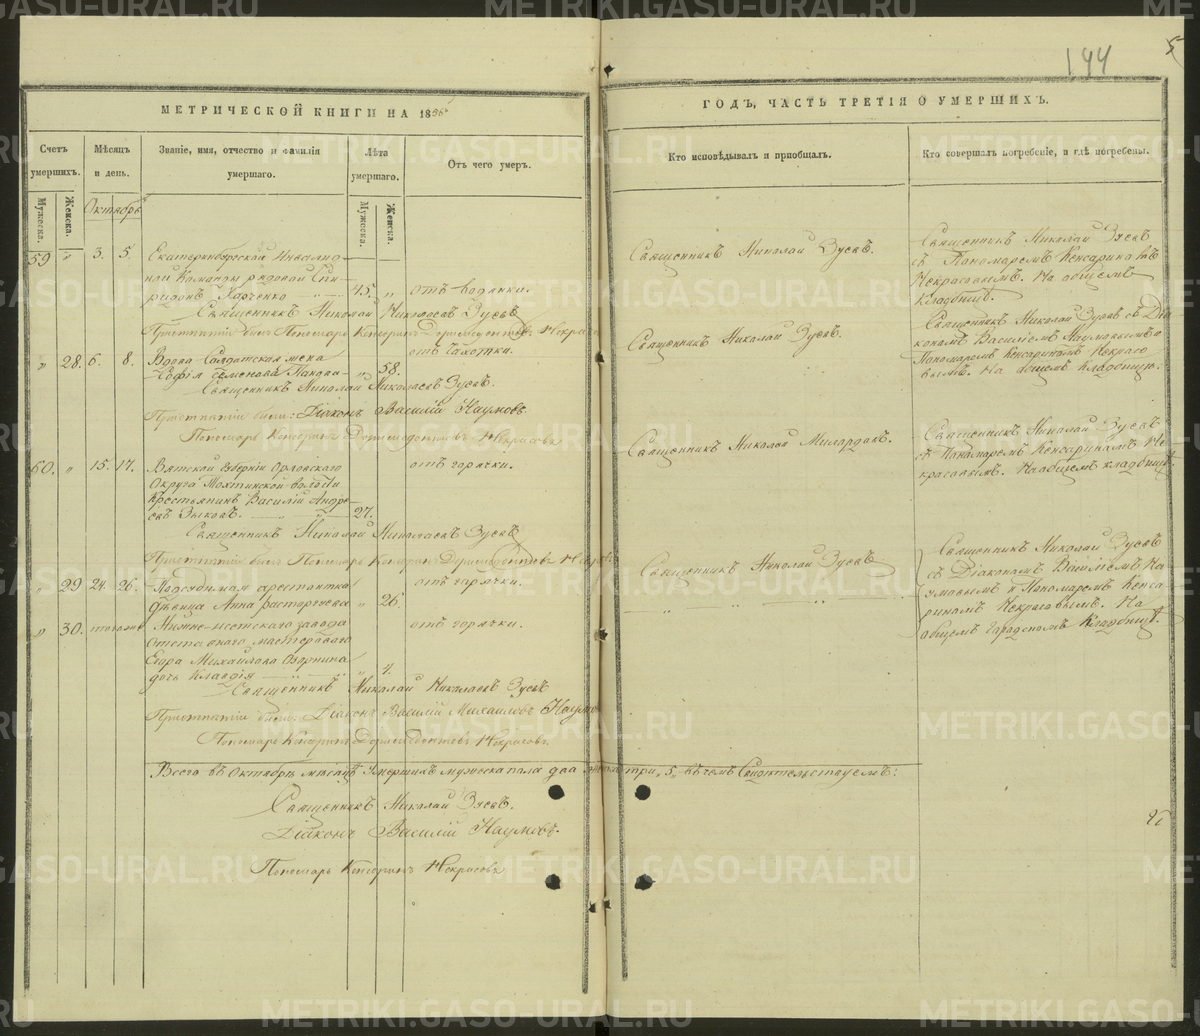 144
5
МЕТРИЧЕСКОЙ КНИГИ НА 18
ГОДЪ, ЧАСТЬ ТРЕТІЯ О УМЕРШИХЪ.
Счетъ умершихъ.
Мѣсяцъ и день.
Званіе, имя, отчество и фамилія умершаго.
Лѣта умершаго.
Отъ чего умеръ.
Кто исповѣдывалъ и пріобщалъ.
Кто совершалъ погребеніе, и гдѣ погребены.
Мужеска.
Женска.
Мужеска.
Женска.
Октябрь
59 " 3. 5.
Екатеринбургской Инвалид-
ной Команды рядовой Спи-
ридонъ Харченко 45. " отъ водянки.
Священникъ Николай Николаевъ Зуевъ
Священникъ Николай Зуевъ.
Священникъ Николай Зуевъ
съ Пономаремъ Кенсариномъ
Некрасовымъ. На общемъ
кладбищѣ.
" 28. 6. 8.
Вдова Солдатская жена
Софія Семенова Панова " 58. отъ чахотки.
Священникъ Николай Николаевъ Зуевъ.
Причетники были: Діаконъ Василій Наумовъ
Пономарь Кенсаринъ Дормедонтовъ Некрасовъ
Священникъ Николай Зуевъ.
Священникъ Николай Зуевъ съ Діа-
кономъ Василіемъ Наумовымъ и
Пономаремъ Кенсариномъ Некрасо-
вымъ. На общемъ кладбищѣ.
60. " 15. 17.
Вятской Губерніи Орловскаго
Округа волости
крестьянинъ Василій Андре-
евъ Зыковъ. 27. отъ горячки.
Священникъ Николай Николаевъ Зуевъ
Священникъ Николай
Священникъ Николай Зуевъ
съ Пономаремъ Кенсариномъ Не-
красовымъ. На общемъ кладбищѣ.
" 29 24. 26.
Подсудимая арестантка
дѣвица Анна Расторгуева " 26. отъ горячки.
Священникъ Николай Зуевъ
" 30.
Нижне-исетскаго завода
отставнаго мастероваго
Егора Михайлова
дочь Клавдія " 4. отъ горячки.
Священникъ Николай Николаевъ Зуевъ
Причетники были: Діаконъ Василій Михайловъ Наумовъ
Пономарь Кенсаринъ Дормедонтовъ Некрасовъ
Священникъ Николай Зуевъ
съ Діакономъ Василіемъ На-
умовымъ и Пономаремъ Кенса-
риномъ Некрасовымъ. На
общемъ городскомъ кладбищѣ.
Всего въ Октябрѣ мѣсяцѣ умершихъ мужеска пола два женска три, 5, въ чемъ свидѣтельствуемъ:
Священникъ Николай Зуевъ.
Діаконъ Василій Наумовъ.
Пономарь Кенсаринъ Некрасовъ
METRIKI.GASO-URAL.RU